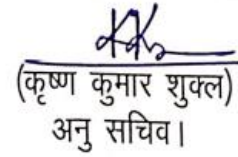 (कृष्ण कुमार शुक्ल)
अनु सचिव।